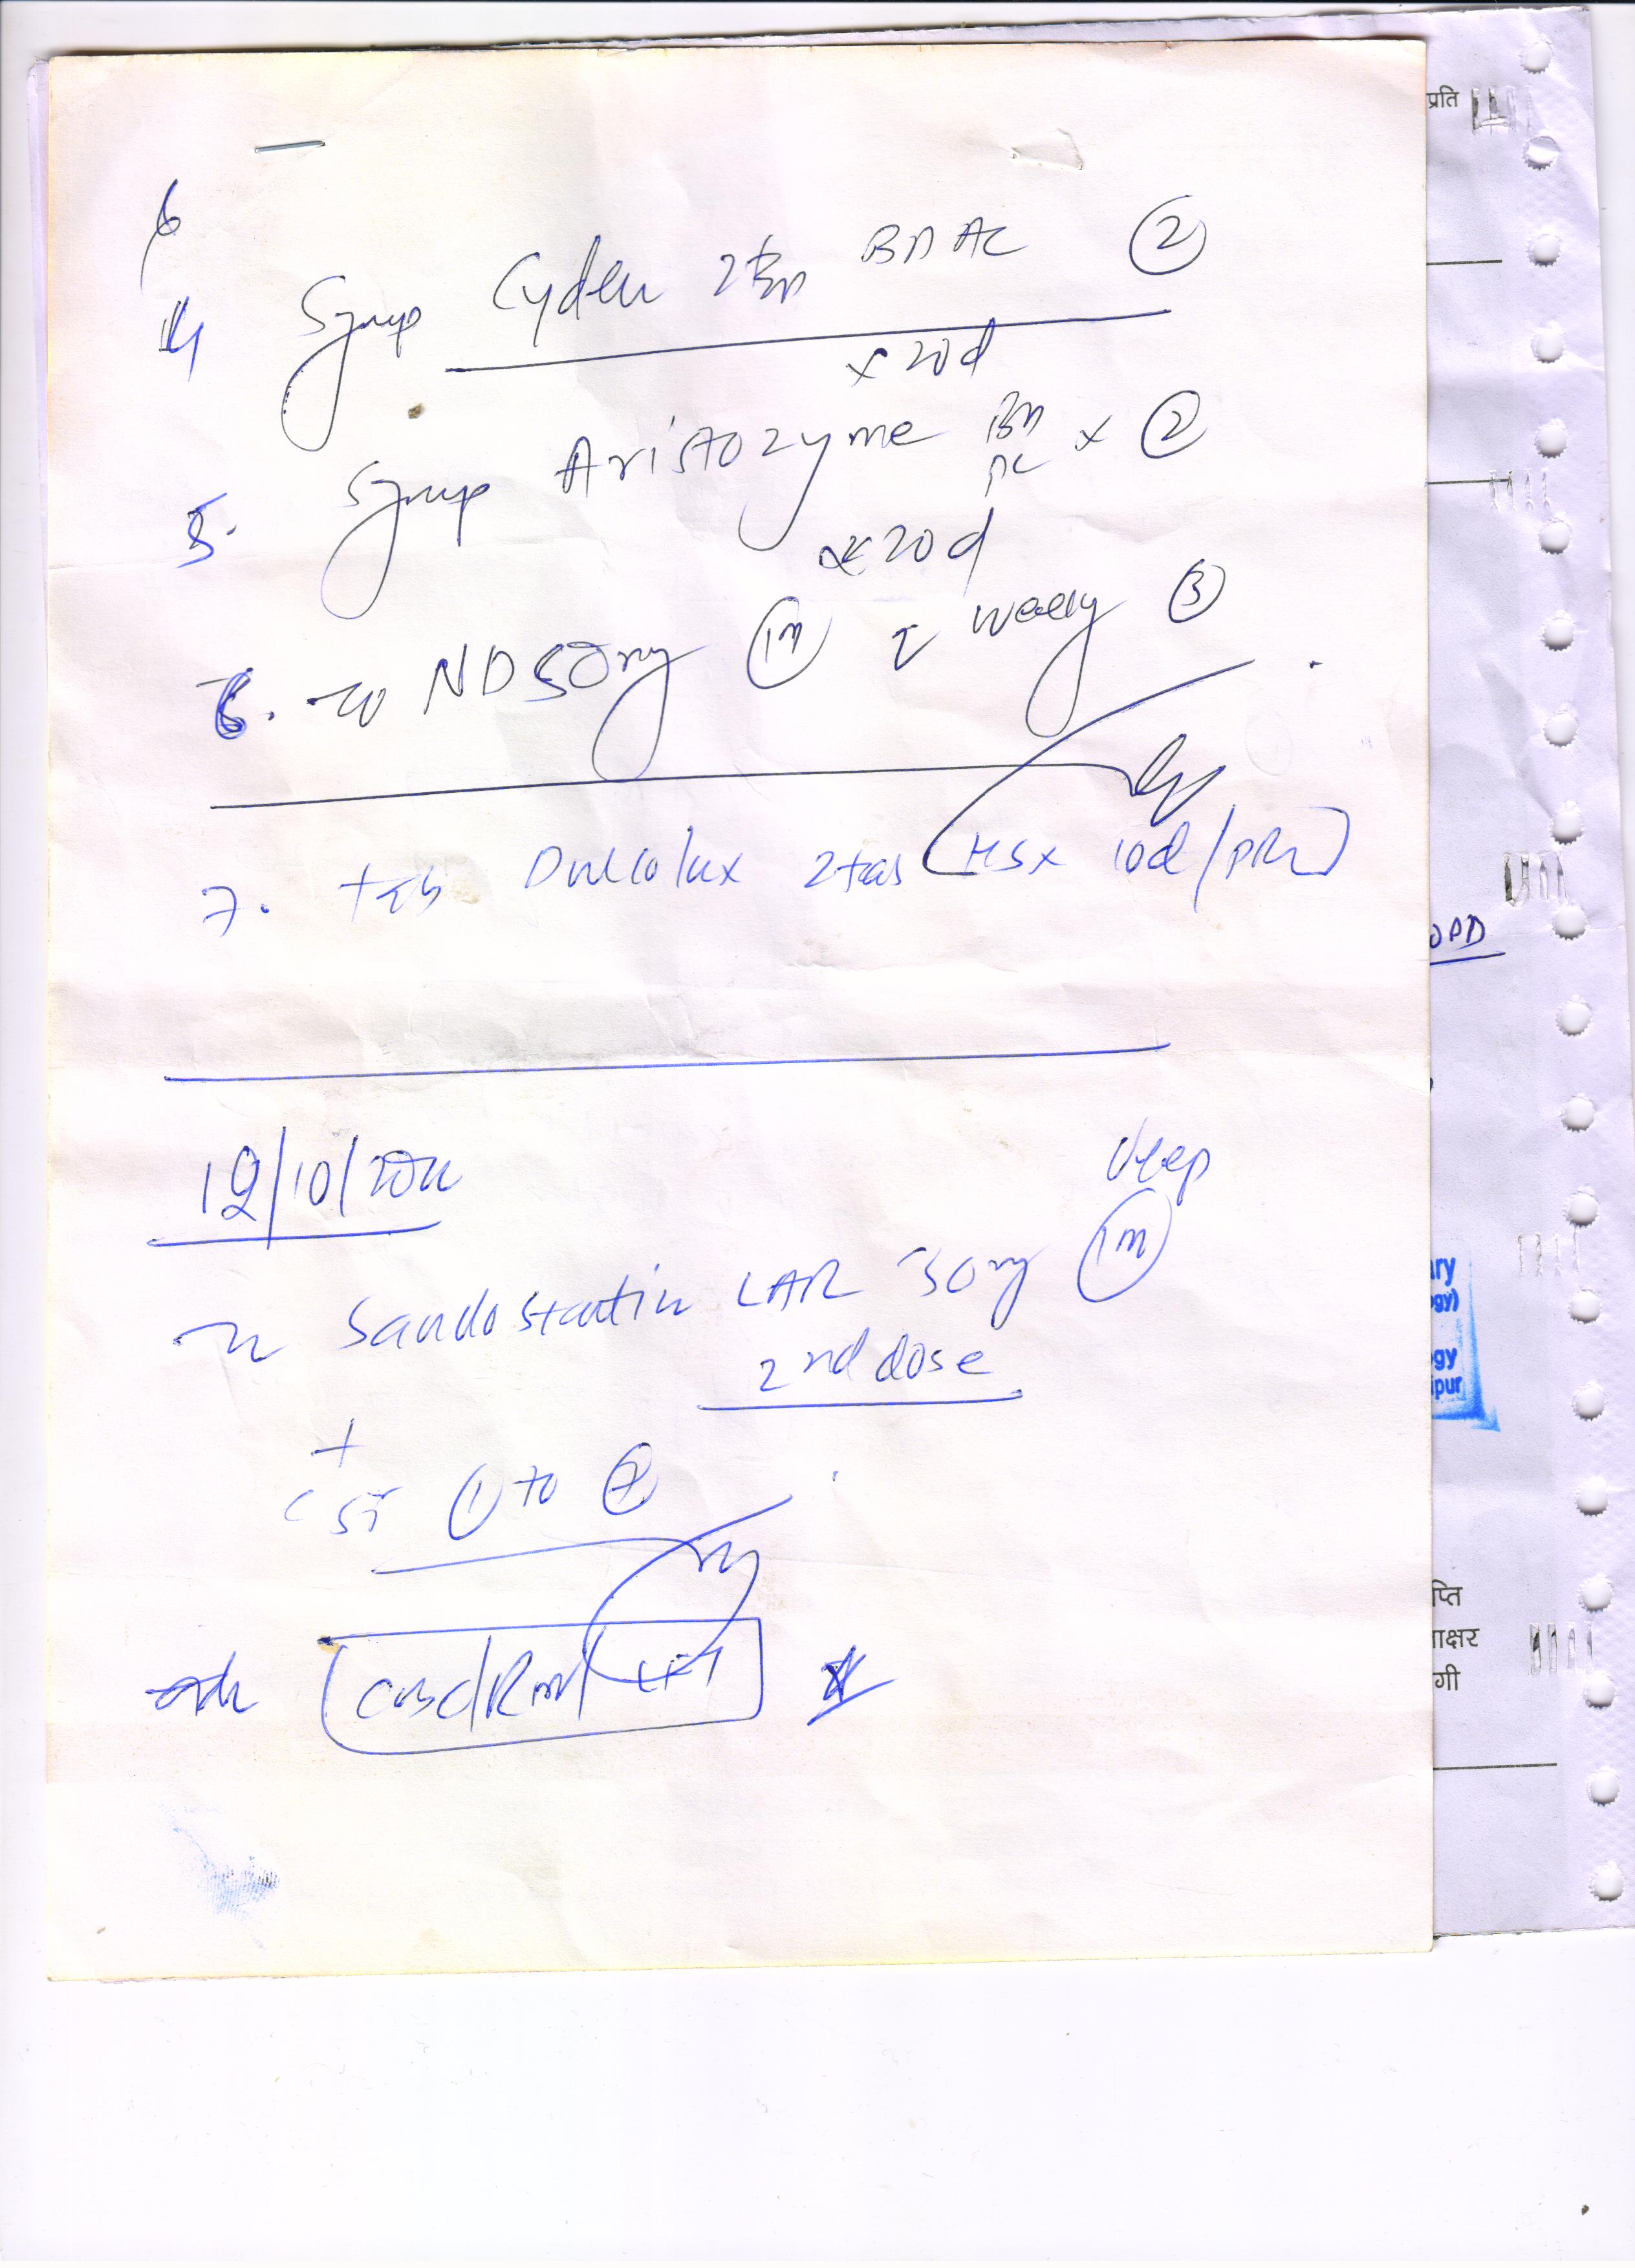 4
Syrup Cyden 2tsp BD AC ②
x 20d
5. Syrup Aristozyme BD PC x ②
x 20 d
6. ND 50mg IM weekly ③
7. tab Dulcolax 2tab (HS x 10d/PRN)
19/10/20
deep
Sandostatin LAR 30mg IM
2nd dose
+
① to ⑦
प्रति
OPD
ry
gy)
gy
ipur
प्ति
ाक्षर
गी